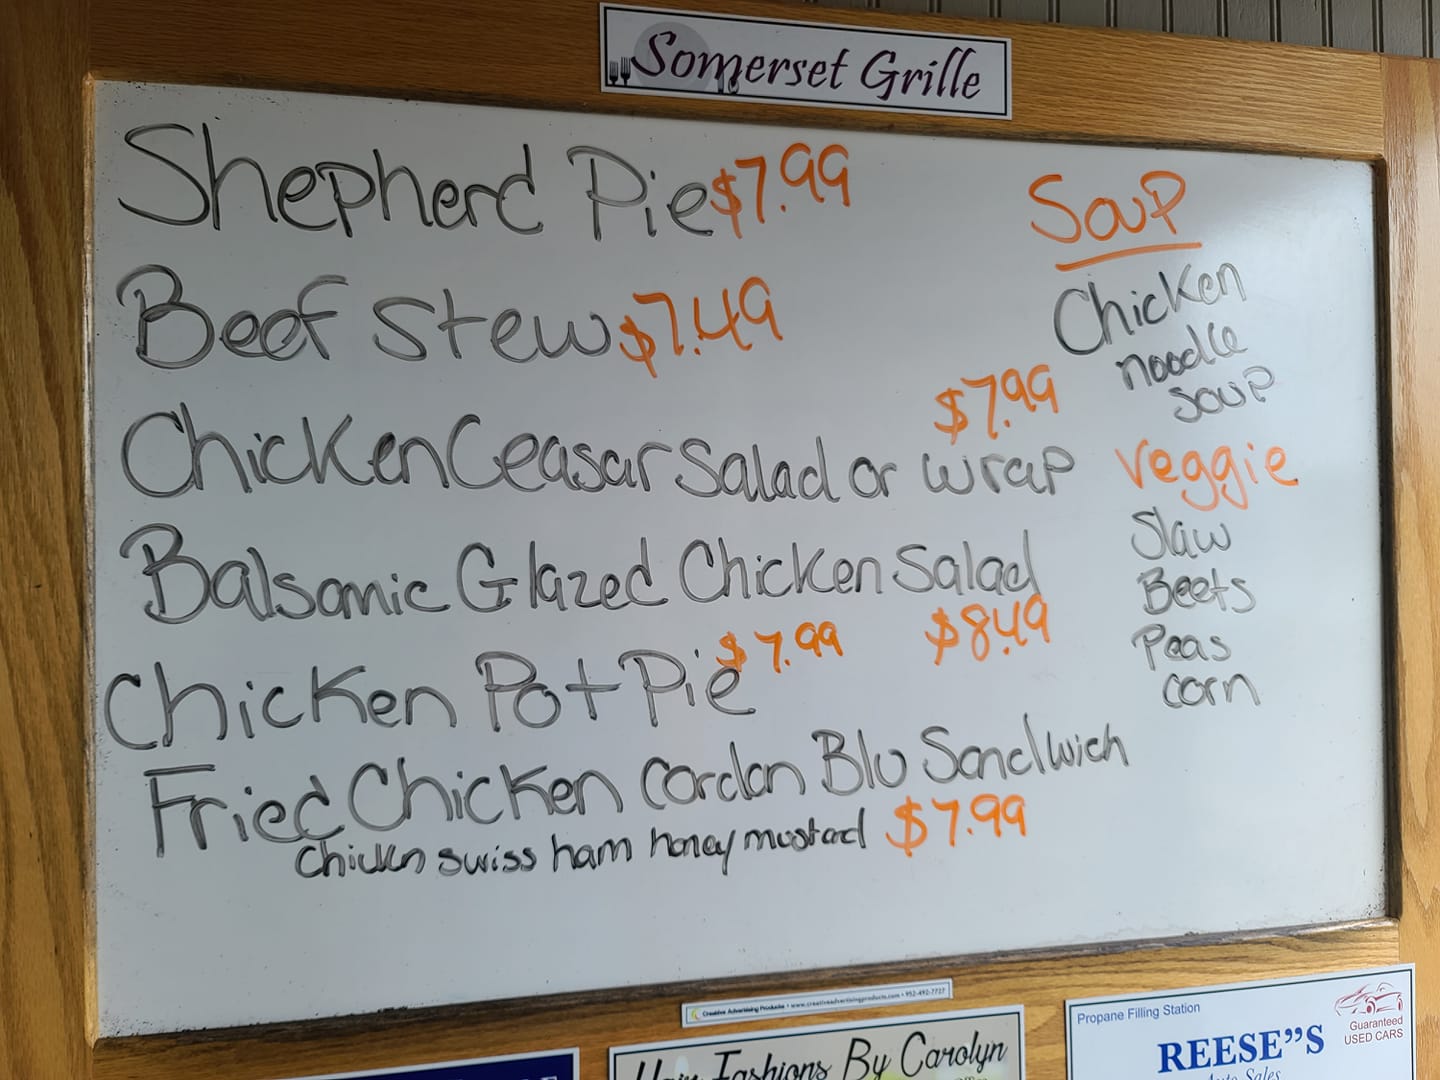 Somerset Grille
Shepherd Pie $7.99
Beef Stew $7.49
$7.99
Chicken Ceasar Salad or wrap
Balsamic Glazed Chicken Salad
$8.49
Chicken Pot Pie $7.99
Fried Chicken Cordon Blu Sandwich
Chickn swiss ham honey mustard $7.99
Soup
Chicken
noodle
soup
Veggie
Slaw
Beets
Peas
corn
Creative Advertising Products • www.creativeadvertisingproducts.com • 952-492-7727
Hair Fashions By Carolyn
Propane Filling Station
REESE"S
Auto Sales
Guaranteed
USED CARS